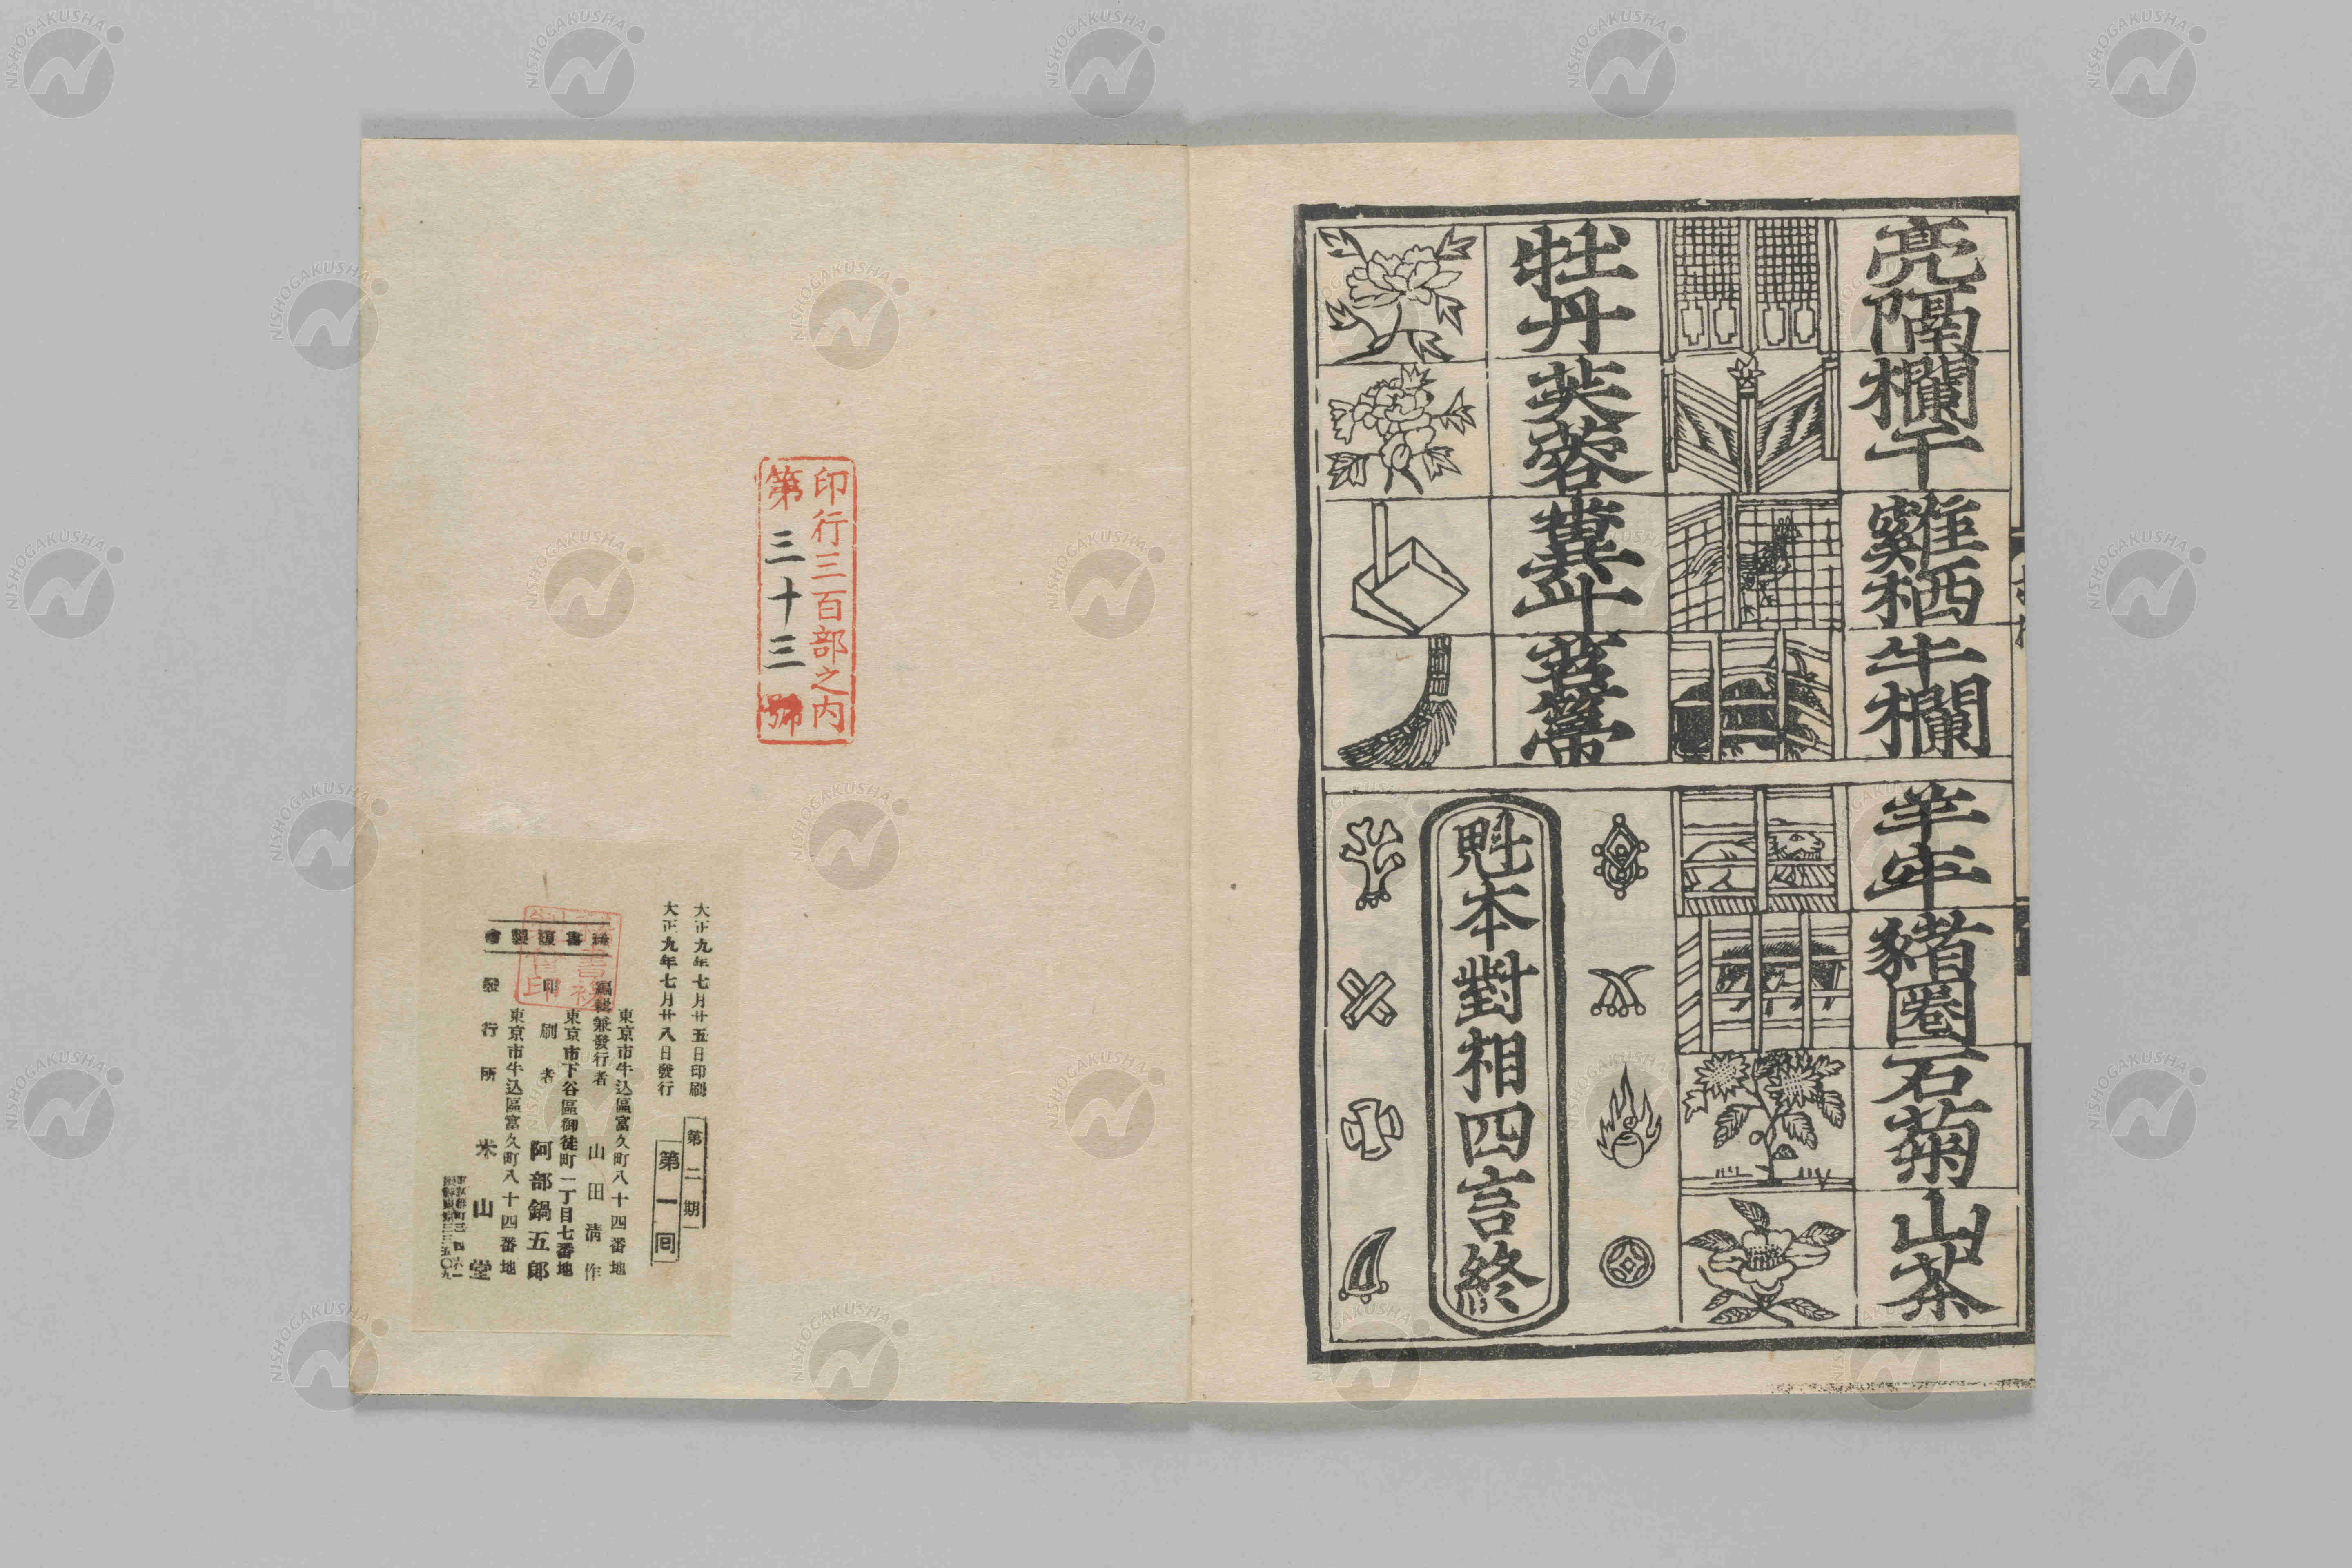 亮隔欄干雞栖牛欄
羊牢豬圈石菊山茶
牡丹芙蓉糞斗苕箒
魁本對相四言終
印行三百部之內
第三十三號
大正九年七月廿五日印刷
大正九年七月廿八日發行
第二期
第一囘
東京市牛込區富久町八十四番地
編輯兼發行者 山田淸作
東京市下谷區御徒町一丁目七番地
印刷者 阿部鍋五郎
東京市牛込區富久町八十四番地
發行所 米山堂
NISHOGAKUSHA